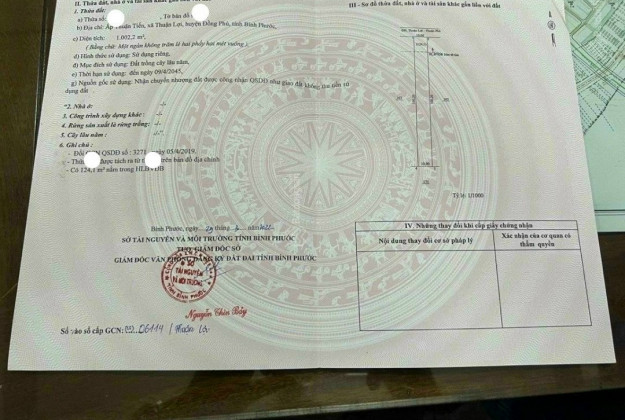 II. Thửa đất, nhà ở và tài sản khác gắn liền với đất
1. Thửa đất:
a) Thửa số: , Tờ bản đồ
b) Địa chỉ: Ấp Thuận Tiến, xã Thuận Lợi, huyện Đồng Phú, tỉnh Bình Phước,
c) Diện tích: 1.002,2 m²,
( Bằng chữ: Một ngàn không trăm lẻ hai phẩy hai mét vuông ),
d) Hình thức sử dụng: Sử dụng riêng,
đ) Mục đích sử dụng: Đất trồng cây lâu năm,
e) Thời hạn sử dụng: đến ngày 09/4/2045,
g) Nguồn gốc sử dụng: Nhận chuyển nhượng đất được công nhận QSDĐ như giao đất không thu tiền sử
dụng đất
2. Nhà ở: -/-
3. Công trình xây dựng khác: -/-
4. Rừng sản xuất là rừng trồng: -/-
5. Cây lâu năm: -/-
6. Ghi chú:
- Đổi QSDĐ số: ngày 05/4/2019,
- Thửa được tách ra từ trên bản đồ địa chính
- Có 124,1 m² nằm trong HLBVĐB
III - Sơ đồ thửa đất, nhà ở và tài sản khác gắn liền với đất
Tỷ lệ: 1/1000
Bình Phước, ngày 29 tháng năm
SỞ TÀI NGUYÊN VÀ MÔI TRƯỜNG TỈNH BÌNH PHƯỚC
TUQ. GIÁM ĐỐC SỞ
GIÁM ĐỐC VĂN PHÒNG ĐĂNG KÝ ĐẤT ĐAI TỈNH BÌNH PHƯỚC
SỞ
TÀI NGUYÊN
VÀ MÔI TRƯỜNG
TỈNH BÌNH PHƯỚC
Nguyễn Chín Bảy
Số vào sổ cấp GCN: 06114 / Thuận Lợi
IV. Những thay đổi khi cấp giấy chứng nhận
Nội dung thay đổi cơ sở pháp lý
Xác nhận của cơ quan có
thẩm quyền